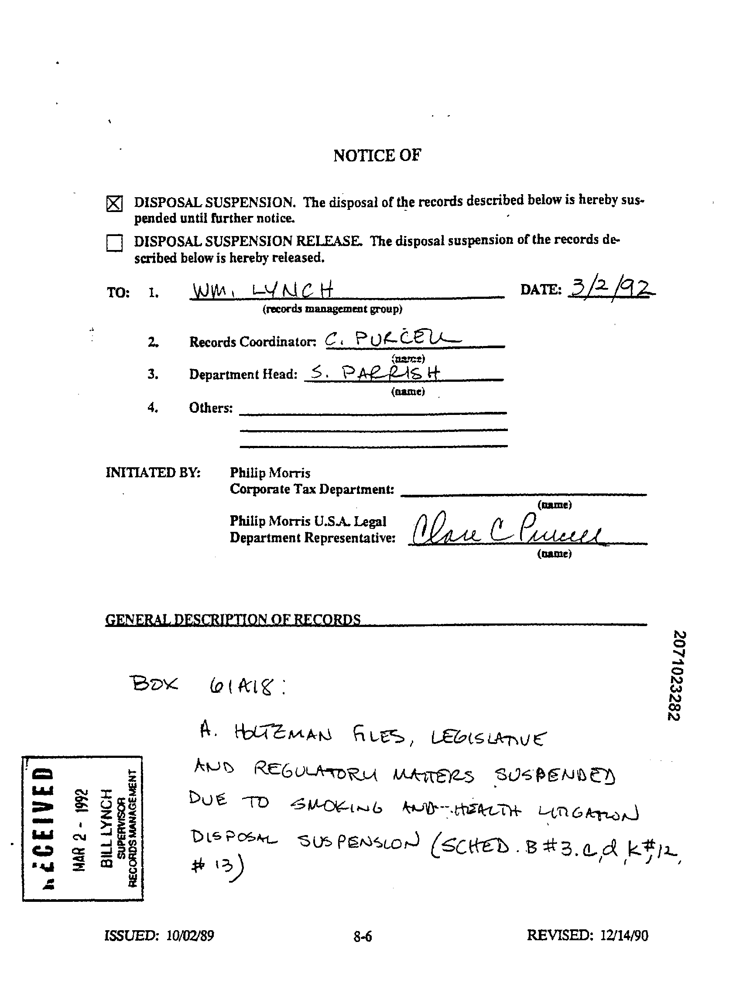 NOTICE OF
DISPOSAL SUSPENSION. The disposal of the records described below is hereby sus-
pended until further notice.
DISPOSAL SUSPENSION RELEASE. The disposal suspension of the records de-
scribed below is hereby released.
TO: 1. WM. LYNCH DATE: 3/2/92
(records management group)
2. Records Coordinator: C. PURCELL
(name)
3. Department Head: S. PARRISH
(name)
4. Others:
INITIATED BY: Philip Morris
Corporate Tax Department:
(name)
Philip Morris U.S.A. Legal
Department Representative: Clare C Purcell
(name)
GENERAL DESCRIPTION OF RECORDS
BOX 61A18:
A. HOLTZMAN FILES, LEGISLATIVE
AND REGULATORY MATTERS SUSPENDED
DUE TO SMOKING AND HEALTH LITIGATION
DISPOSAL SUSPENSION (SCHED. B #3. c, d, k #12,
# 13)
RECEIVED
MAR 2 - 1992
BILL LYNCH
SUPERVISOR
RECORDS MANAGEMENT
2071023282
ISSUED: 10/02/89 8-6 REVISED: 12/14/90